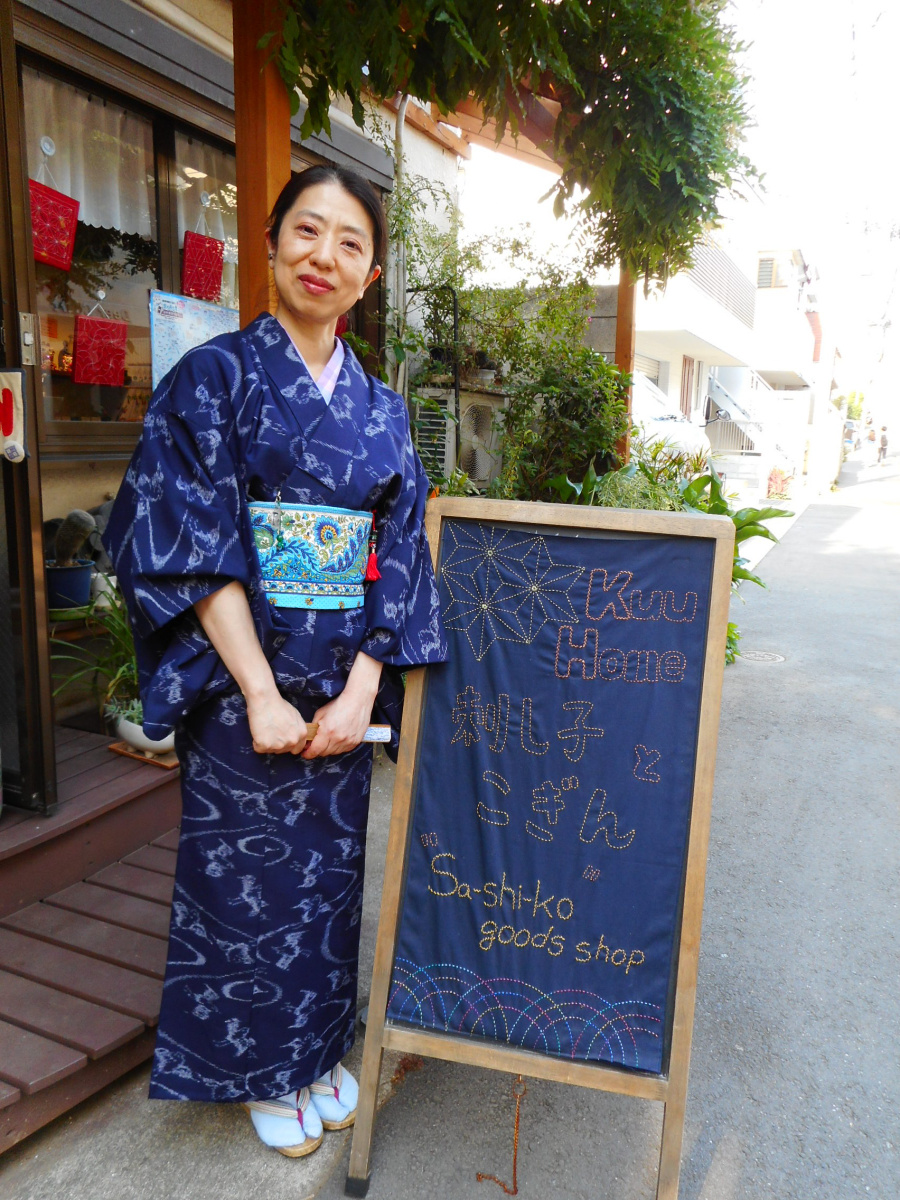 Kuu
Home
刺し子
と
こぎん
Sa-shi-ko
goods shop